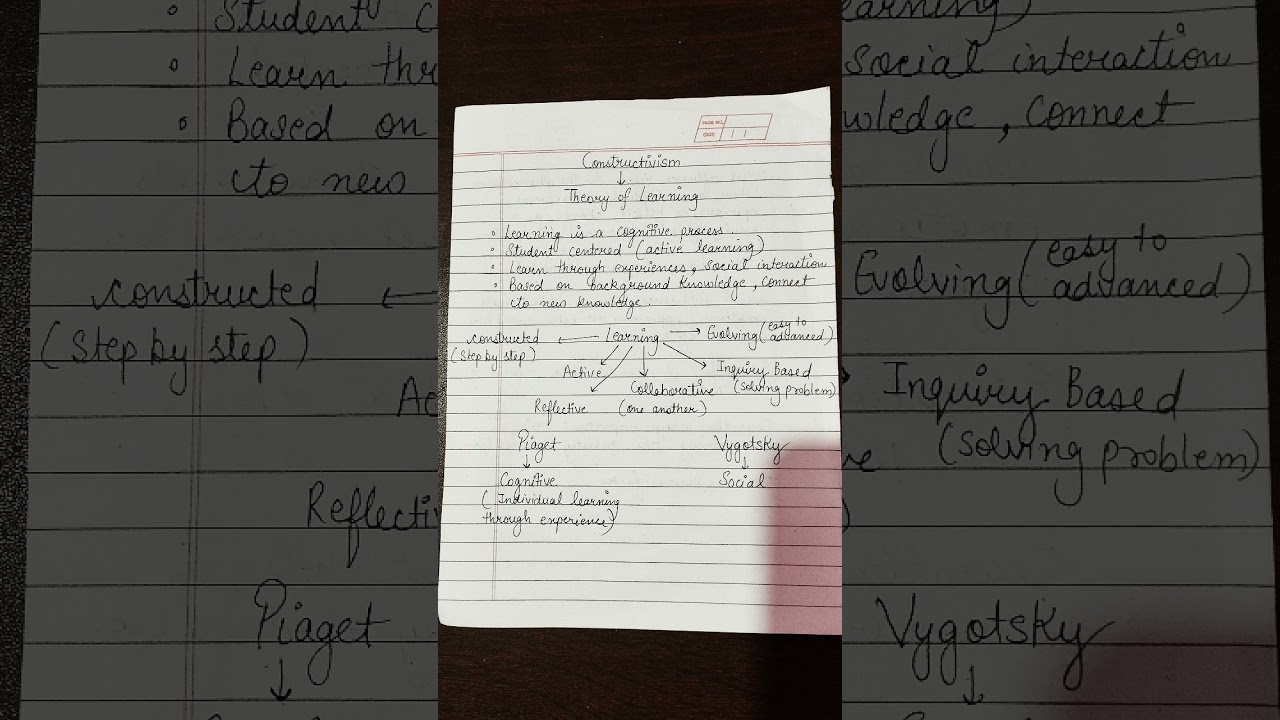 PAGE NO.
DATE
Constructivism
↓
Theory of Learning
• Learning is a cognitive process.
• Student centered (active learning)
• Learn through experiences, social interaction
• Based on background knowledge, connect
to new knowledge.
constructed ← Learning → Evolving (easy to advanced)
(Step by step)
Active
Inquiry Based
Collaborative (solving problem)
Reflective (one another)
Piaget Vygotsky
↓ ↓
Cognitive Social
(Individual learning
through experience)